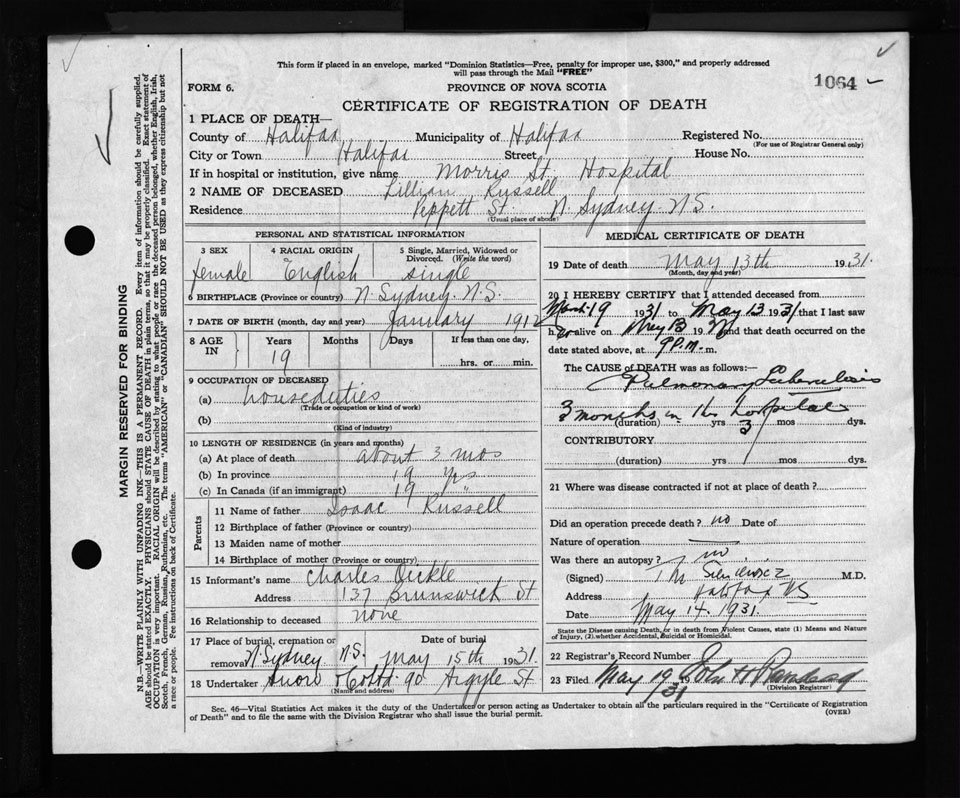 This form if placed in an envelope, marked "Dominion Statistics—Free, penalty for improper use, $300," and properly addressed
will pass through the Mail "FREE"
1064
FORM 6.
PROVINCE OF NOVA SCOTIA
CERTIFICATE OF REGISTRATION OF DEATH
MARGIN RESERVED FOR BINDING
N.B.—WRITE PLAINLY WITH UNFADING INK—THIS IS A PERMANENT RECORD. Every item of information should be carefully supplied.
AGE should be stated EXACTLY. PHYSICIANS should STATE CAUSE OF DEATH in plain terms, so that it may be properly classified. Exact statement of
OCCUPATION is very important. RACIAL ORIGIN will be described by stating to what people or race the deceased person belonged, whether English, Irish,
Scotch, French, German, Russian, Ruthenian, etc. The terms "AMERICAN" or "CANADIAN" SHOULD NOT BE USED as they express citizenship but not
a race or people. See instructions on back of Certificate.
1 PLACE OF DEATH—
County of Halifax Municipality of Halifax Registered No.
(For use of Registrar General only)
City or Town Halifax Street House No.
If in hospital or institution, give name Morris St. Hospital
2 NAME OF DECEASED Lillian Russell
Residence Peppett St. N. Sydney. N.S.
(Usual place of abode)
PERSONAL AND STATISTICAL INFORMATION
3 SEX 4 RACIAL ORIGIN 5 Single, Married, Widowed or
Divorced. (Write the word)
female English single
6 BIRTHPLACE (Province or country) N. Sydney. N.S.
7 DATE OF BIRTH (month, day and year) January 1912
8 AGE IN Years Months Days If less than one day,
19 hrs. or min.
9 OCCUPATION OF DECEASED
(a) houseduties
(Trade or occupation or kind of work)
(b)
(Kind of industry)
10 LENGTH OF RESIDENCE (in years and months)
(a) At place of death about 3 mos
(b) In province 19 yrs
(c) In Canada (if an immigrant) 19 "
Parents
11 Name of father Isaac Russell
12 Birthplace of father (Province or country)
13 Maiden name of mother
14 Birthplace of mother (Province or country)
15 Informant's name Charles Dickle
Address 137 Brunswick St
16 Relationship to deceased none
17 Place of burial, cremation or Date of burial
removal N. Sydney. N.S. May 15th 1931.
18 Undertaker Snow & Co Ltd. 90 Argyle St
(Name and address)
MEDICAL CERTIFICATE OF DEATH
19 Date of death May 13th 1931.
(Month, day and year)
20 I HEREBY CERTIFY that I attended deceased from
March 19 1931 to May 13 1931 that I last saw
h er alive on May 13 1931 and that death occurred on the
date stated above, at 9 P.M. m.
The CAUSE of DEATH was as follows:—
Pulmonary Tuberculosis
3 months in this hospital
(duration) yrs 3 mos dys.
CONTRIBUTORY
(duration) yrs mos dys.
21 Where was disease contracted if not at place of death?
Did an operation precede death? no Date of
Nature of operation
Was there an autopsy? no
(Signed) M.D.
Address Halifax NS
Date May 14. 1931.
State the Disease causing Death, or in death from Violent Causes, state (1) Means and Nature
of Injury, (2) whether Accidental, Suicidal or Homicidal.
22 Registrar's Record Number
23 Filed May 19 1931 John H
(Division Registrar)
Sec. 46—Vital Statistics Act makes it the duty of the Undertaker or person acting as Undertaker to obtain all the particulars required in the "Certificate of Registration
of Death" and to file the same with the Division Registrar who shall issue the burial permit.
(OVER)